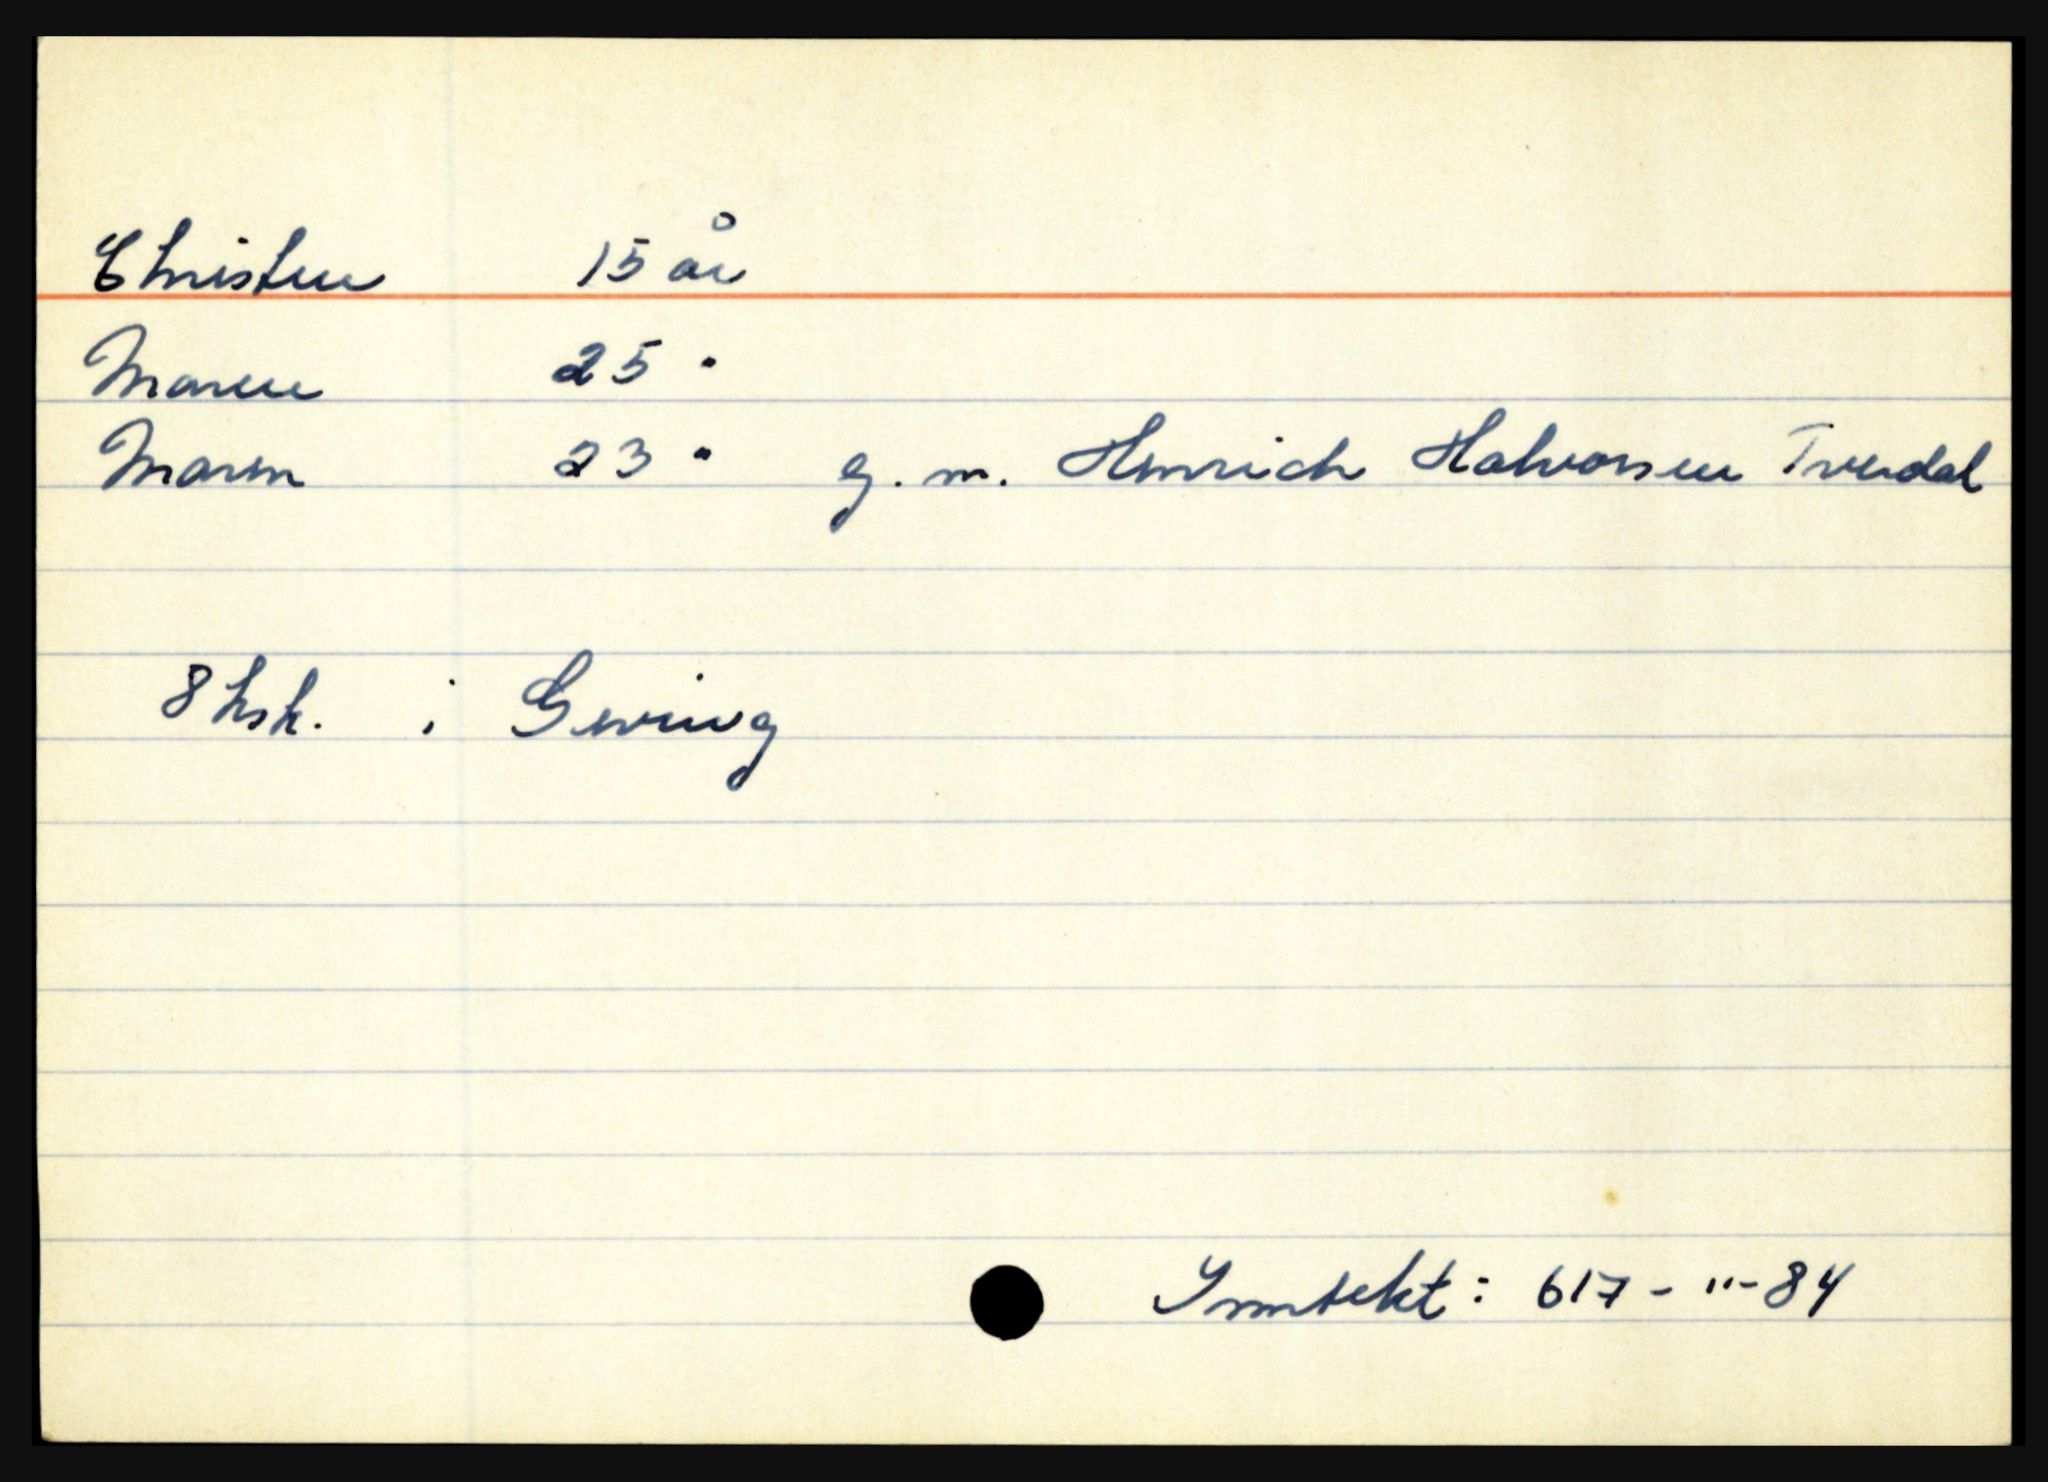 Christen 15 år
Maren 25 "
Maren 23 " g. m. Henrich Halvorsen Tverdal
8 hsk. i Gjeving
Inntekt: 617 - "- 84